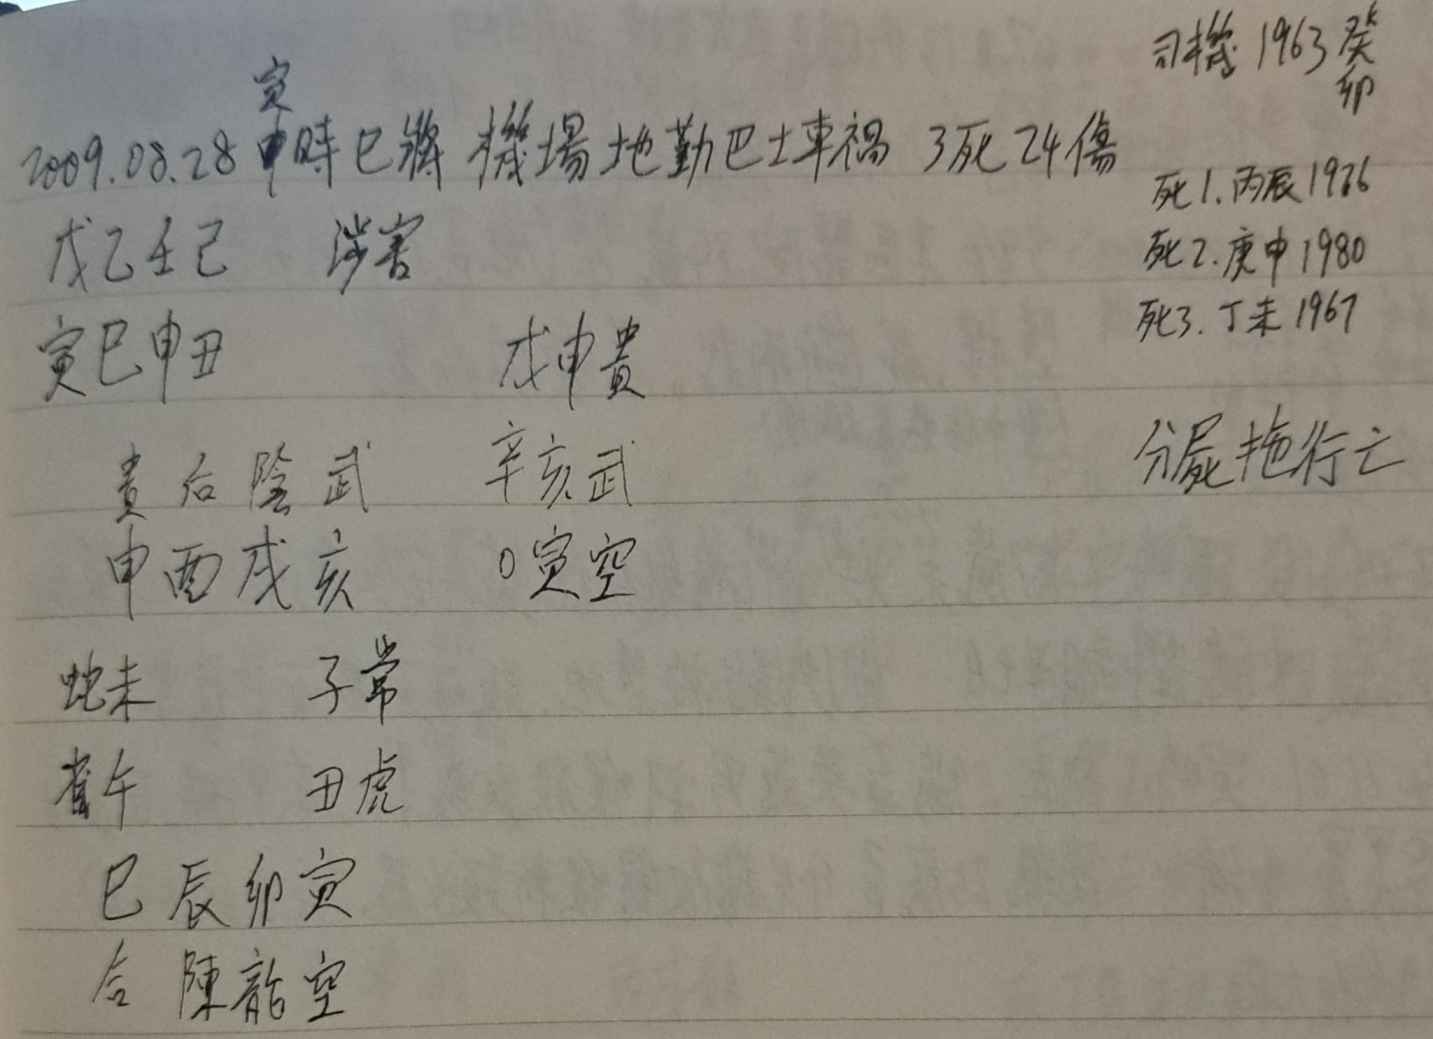 司機 1963 癸卯
寅
2009.08.28 時巳將 機場地勤巴士車禍 3死24傷
死1.丙辰1976
戊乙壬己 涉害
死2.庚申1980
死3.丁未1967
寅巳申丑 戊申貴
貴后陰武 辛亥武
分屍拖行亡
申酉戌亥 0寅空
蛇未 子常
雀午 丑虎
巳辰卯寅
合陳龍空